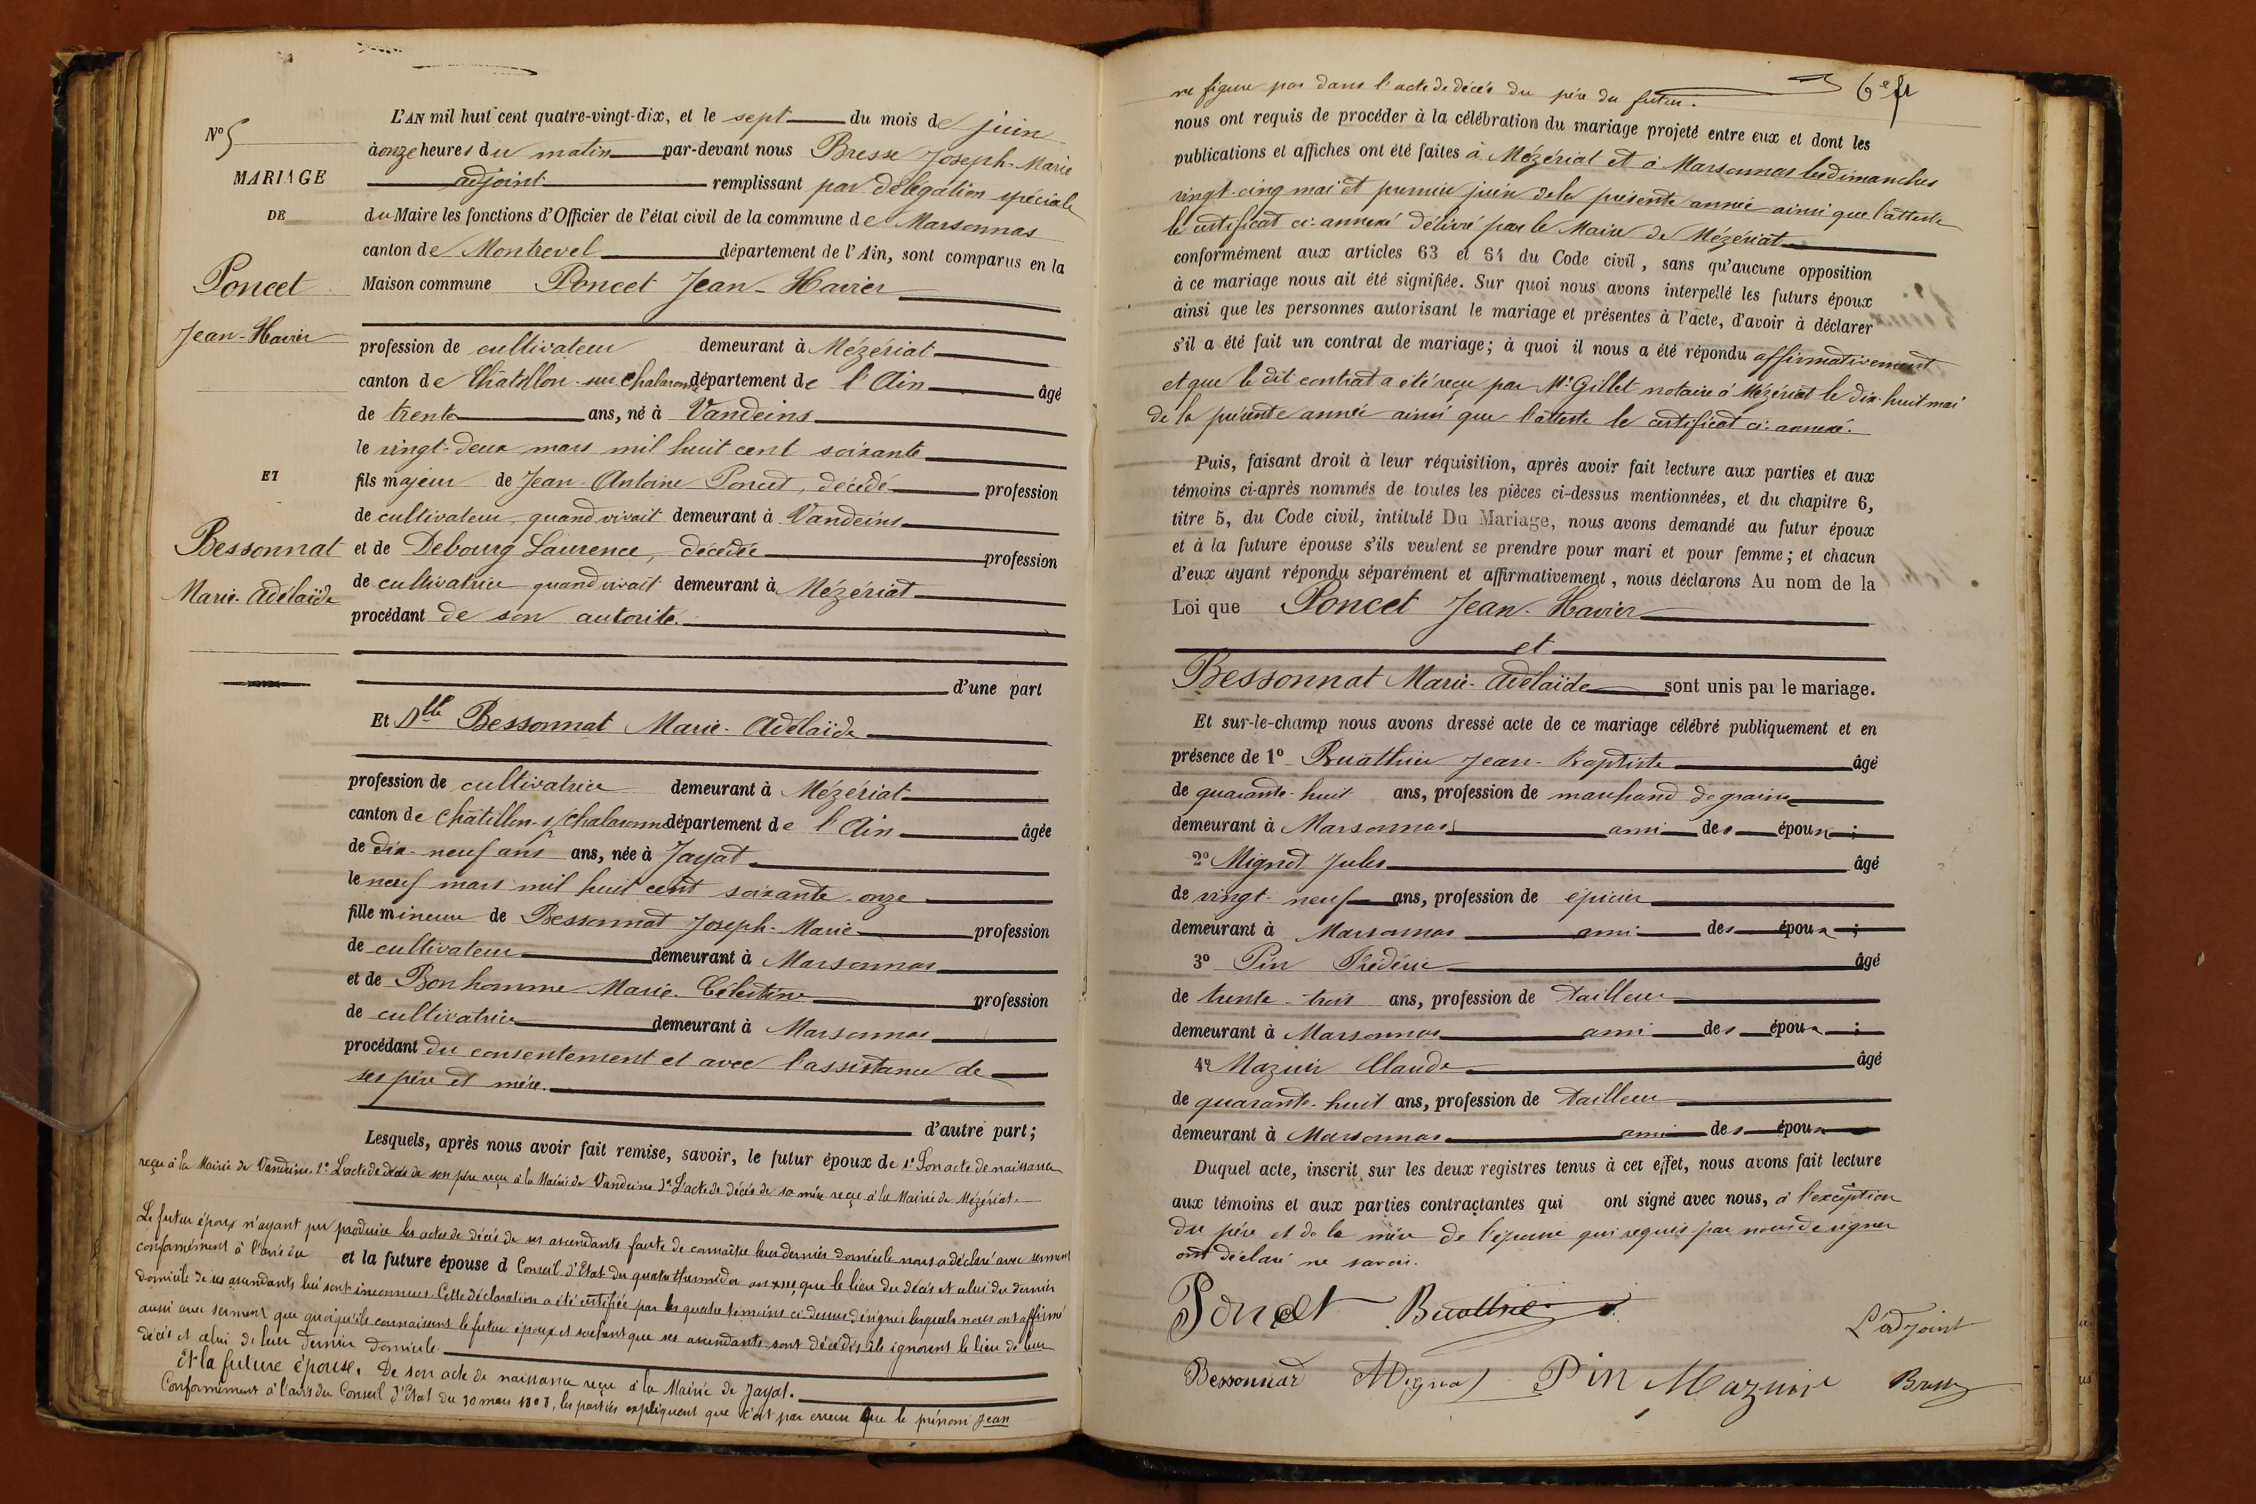 L'AN mil huit cent quatre-vingt-dix, et le sept du mois de juin
à onze heures du matin par-devant nous Bresse Joseph-Marie
adjoint remplissant par délégation spéciale
du Maire les fonctions d'Officier de l'état civil de la commune de Marsonnas
canton de Montrevel département de l'Ain, sont comparus en la
Maison commune Poncet Jean-Xavier
profession de cultivateur demeurant à Mézériat
canton de Châtillon-sur Chalaronne département de l'Ain âgé
de trente ans, né à Vandeins
le vingt-deux mars mil huit cent soixante
fils majeur de Jean-Antoine Poncet, décédé profession
de cultivateur, quand vivait demeurant à Vandeins
et de Debourg Laurence, décédée profession
de cultivatrice quand vivait demeurant à Mézériat
procédant de son autorité.
d'une part
Et Dlle Bessonnat Marie-Adélaïde
profession de cultivatrice demeurant à Mézériat
canton de Châtillon-s/Chalaronne département de l'Ain âgée
de dix-neuf ans ans, née à Jayat
le neuf mars mil huit cent soixante-onze
fille mineure de Bessonnat Joseph-Marie profession
de cultivateur demeurant à Marsonnas
et de Bonhomme Marie-Célestine profession
de cultivatrice demeurant à Marsonnas
procédant du consentement et avec l'assistance de
ses père et mère.
d'autre part;
Lesquels, après nous avoir fait remise, savoir, le futur époux de 1° Son acte de naissance
reçu à la Mairie de Vandeins. 2° L'acte de décès de son père reçu à la Mairie de Vandeins 3° L'acte de décès de sa mère reçu à la Mairie de Mézériat.
Le futur époux n'ayant pu produire les actes de décès de ses ascendants faute de connaître leur dernier domicile nous a déclaré avec serment
conformément à l'avis du et la future épouse d Conseil d'Etat du quatre thermidor an XIII, que le lieu du décès et celui du dernier
domicile de ses ascendants lui sont inconnus. Cette déclaration a été certifiée par les quatre témoins ci-dessus désignés lesquels nous ont affirmé
aussi avec serment que quoiqu'ils connaissent le futur époux et sachant que ses ascendants sont décédés, ils ignorent le lieu de leur
décès et celui de leur dernier domicile.
Et la future épouse. De son acte de naissance reçu à la Mairie de Jayat.
Conformément à l'avis du Conseil d'Etat du 30 mars 1808, les parties expliquent que c'est par erreur que le prénom Jean
N° 5
MARIAGE
DE
Poncet
Jean-Xavier
ET
Bessonnat
Marie-Adélaïde
6e ft
ne figure pas dans l'acte de décès du père du futur.
nous ont requis de procéder à la célébration du mariage projeté entre eux et dont les
publications et affiches ont été faites à Mézériat et à Marsonnas les dimanches
vingt-cinq mai et premier juin de la présente année ainsi que l'atteste
le certificat ci-annexé délivré par le Maire de Mézériat
conformément aux articles 63 et 64 du Code civil, sans qu'aucune opposition
à ce mariage nous ait été signifiée. Sur quoi nous avons interpellé les futurs époux
ainsi que les personnes autorisant le mariage et présentes à l'acte, d'avoir à déclarer
s'il a été fait un contrat de mariage; à quoi il nous a été répondu affirmativement
et que le dit contrat a été reçu par Me Gillet notaire à Mézériat le dix-huit mai
de la présente année ainsi que l'atteste le certificat ci-annexé.
Puis, faisant droit à leur réquisition, après avoir fait lecture aux parties et aux
témoins ci-après nommés de toutes les pièces ci-dessus mentionnées, et du chapitre 6,
titre 5, du Code civil, intitulé Du Mariage, nous avons demandé au futur époux
et à la future épouse s'ils veulent se prendre pour mari et pour femme; et chacun
d'eux ayant répondu séparément et affirmativement, nous déclarons Au nom de la
Loi que Poncet Jean-Xavier
et
Bessonnat Marie-Adélaïde sont unis par le mariage.
Et sur-le-champ nous avons dressé acte de ce mariage célébré publiquement et en
présence de 1° Buathier Jean-Baptiste âgé
de quarante-huit ans, profession de marchand de grains
demeurant à Marsonnas ami des époux;
2° Mignot Jules âgé
de vingt-neuf ans, profession de épicier
demeurant à Marsonnas ami des époux;
3° Pin Frédéric âgé
de trente-trois ans, profession de tailleur
demeurant à Marsonnas ami des époux;
4° Mazuir Claude âgé
de quarante-huit ans, profession de tailleur
demeurant à Marsonnas ami des époux
Duquel acte, inscrit sur les deux registres tenus à cet effet, nous avons fait lecture
aux témoins et aux parties contractantes qui ont signé avec nous, à l'exception
du père et de la mère de l'épouse qui requis par nous de signer
ont déclaré ne savoir.
Poncet Buathier
L'adjoint
Bessonnat Mignot Pin Mazuir Bresse